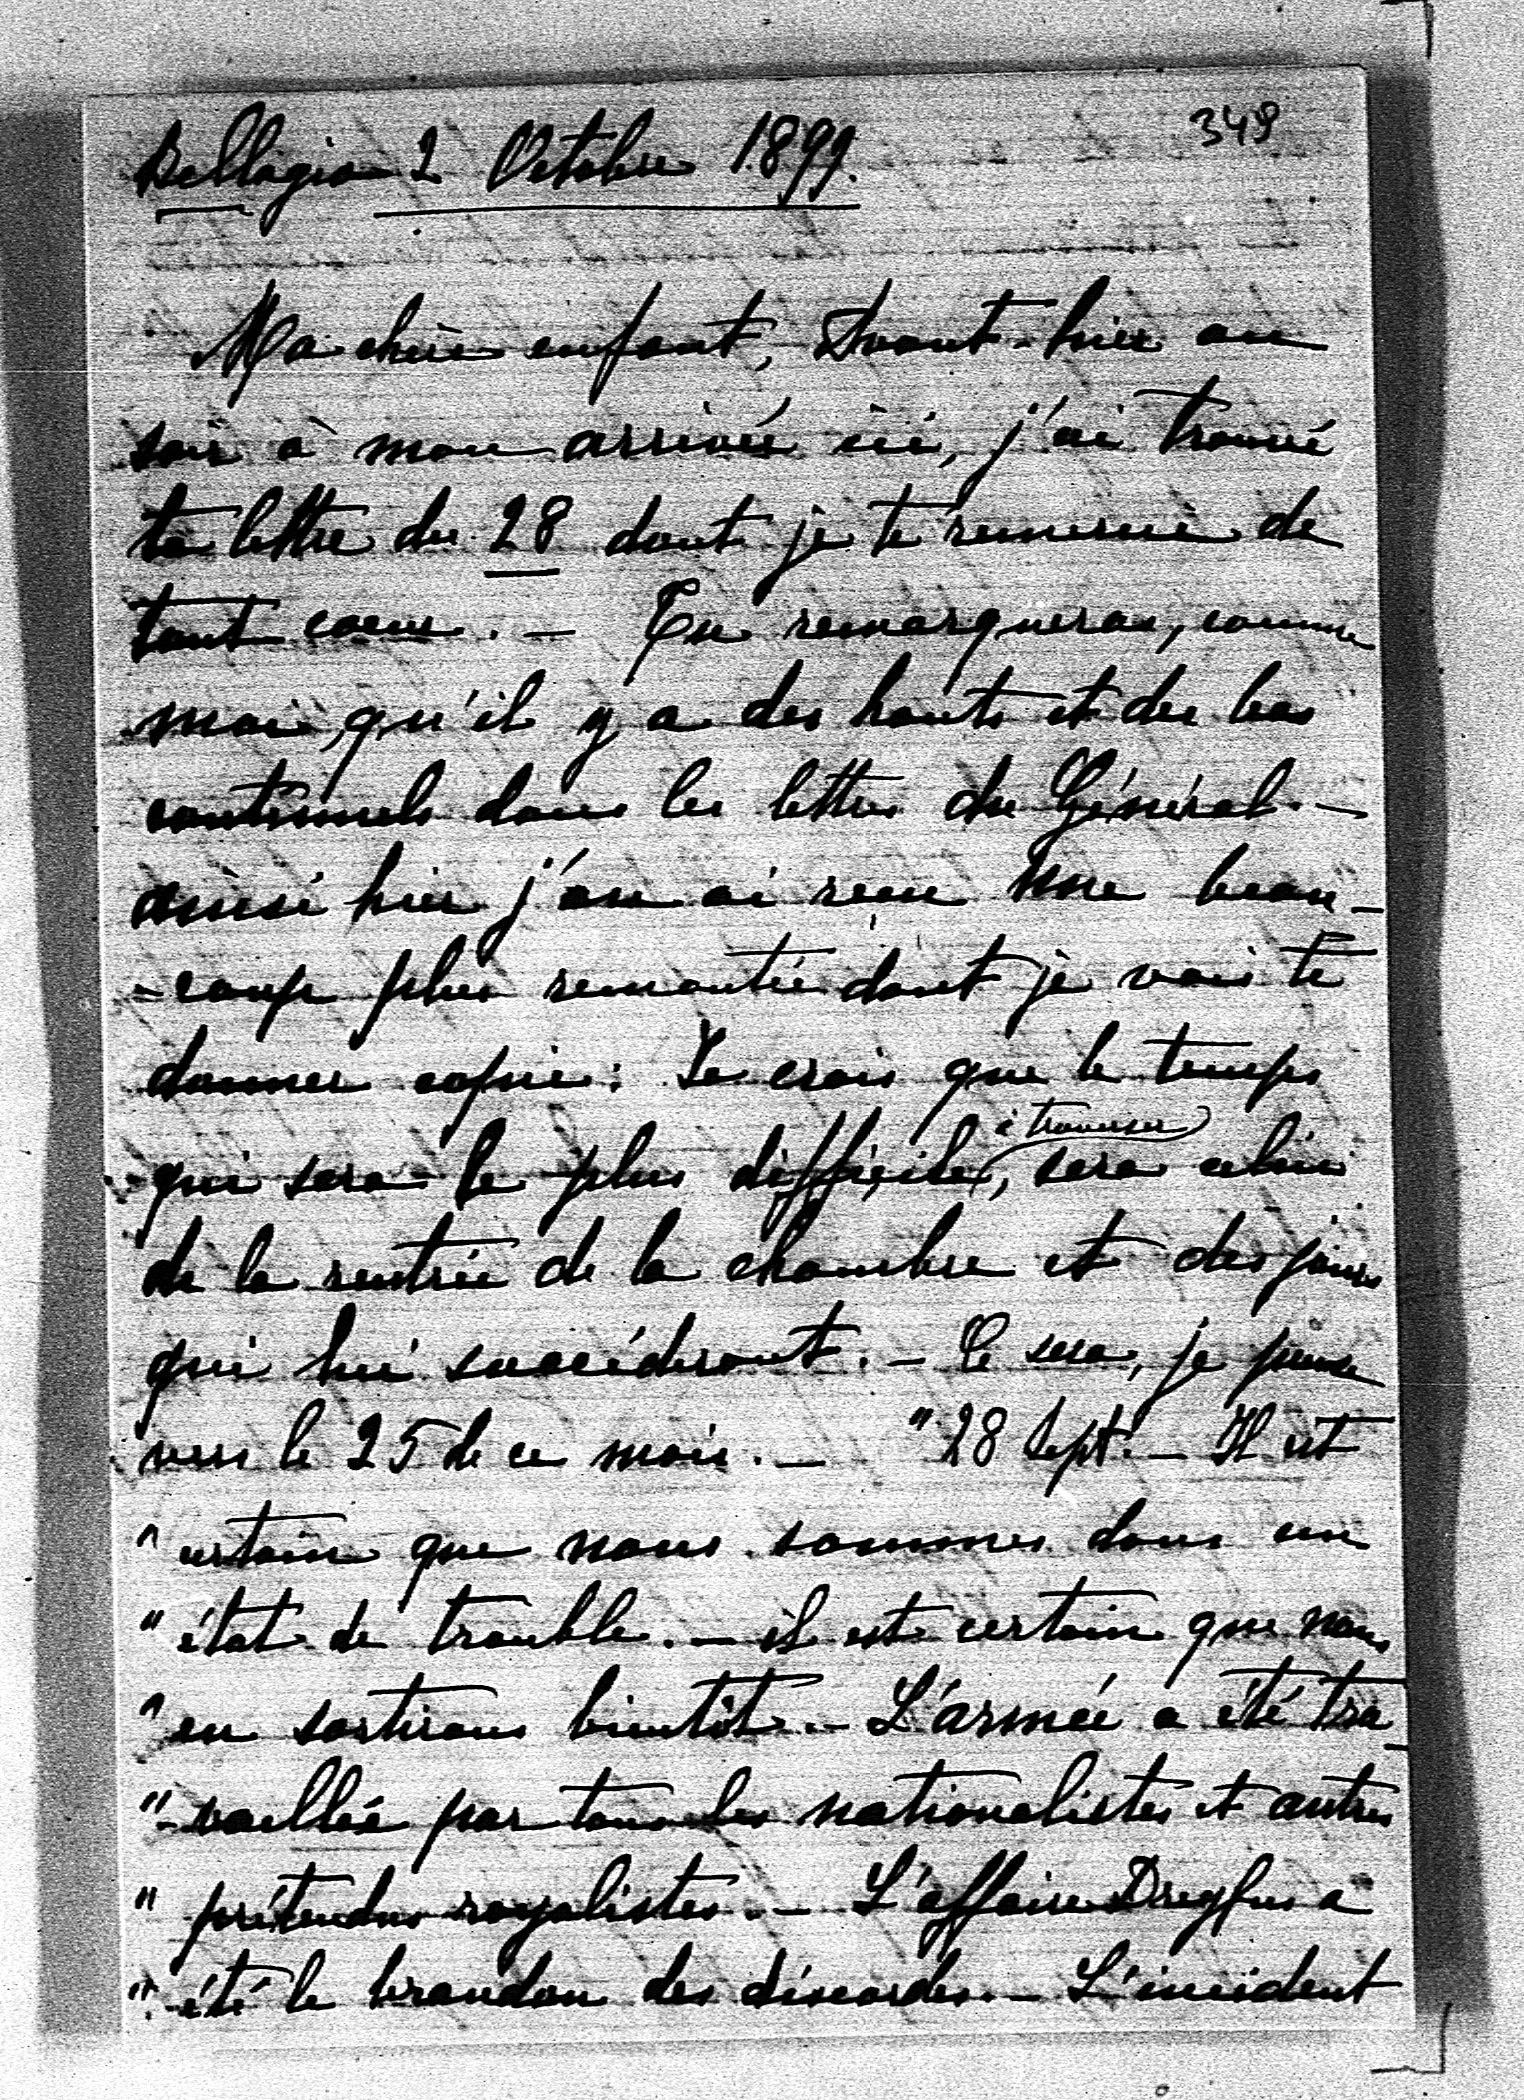 Bellagio 2 Octobre 1899.
349
Ma chère enfant, Avant-hier au
soir à mon arrivée ici, j'ai trouvé
ta lettre du 28 dont je te remercie de
tout coeur. — Tu remarqueras, comme
moi, qu'il y a des hauts et des bas
continuels dans les lettres du Général. —
ainsi hier j'en ai reçu une beau-
-coup plus remontée dont je vais te
donner copie: Je crois que le temps
qui sera le plus difficile à traverser, sera celui
de la rentrée de la chambre et des jours
qui lui succéderont. — Ce sera, je pense
vers le 25 de ce mois. — "28 Sept. — Il est
" certain que nous sommes dans un
" état de trouble. — il est certain que nous
" en sortirons bientôt. — L'armée a été tra-
"-vaillée par tous les nationalistes et autres
" prétendus royalistes. — L'affaire Dreyfus a
" été le brandon des discordes. — L'incident